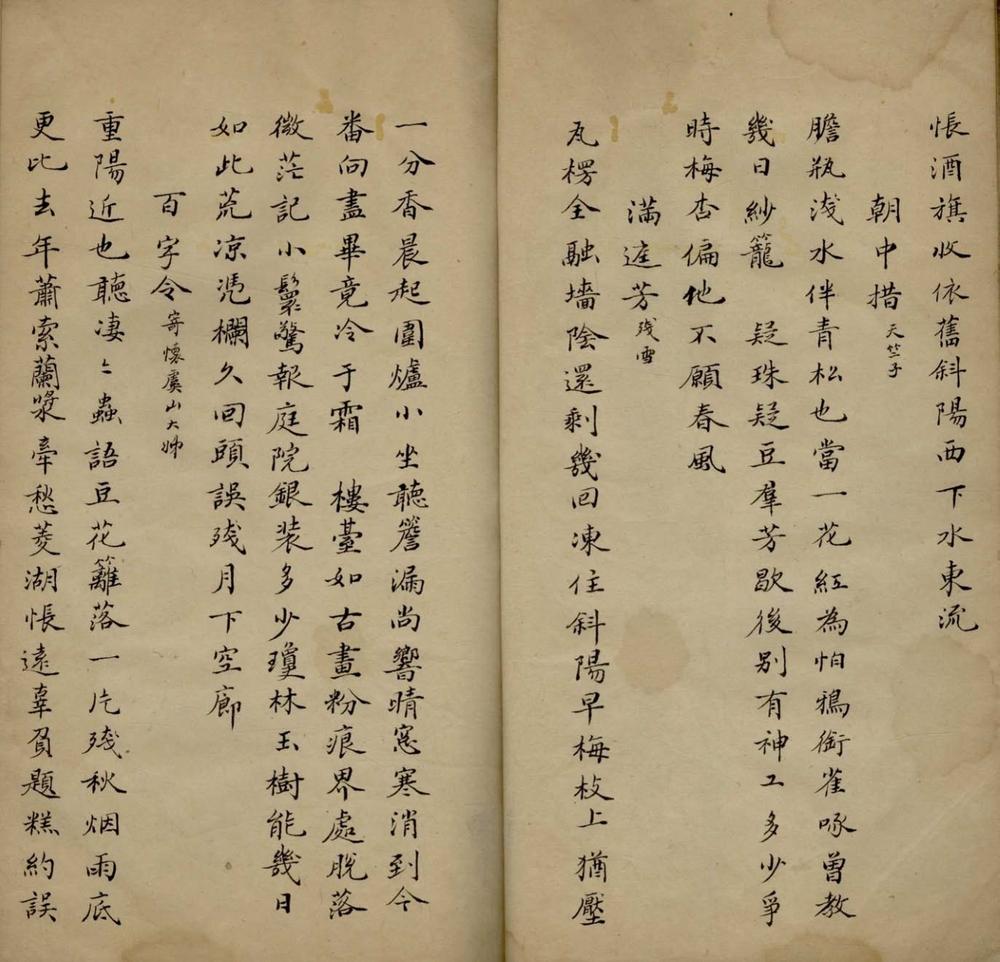 悵酒旗收依舊斜陽西下水東流
朝中措 天竺子
膽瓶淺水伴青松也當一花紅為怕鴉銜雀啄曾教
幾日紗籠 疑珠疑豆羣芳歇後別有神工多少爭
時梅杏偏他不願春風
滿庭芳 殘雪
瓦楞全融墻陰還剩幾回凍住斜陽早梅枝上猶壓
一分香晨起圍爐小坐聽簷漏尚響晴窓寒消到今
番向盡畢竟冷于霜 樓臺如古畫粉痕界處脫落
微茫記小鬟驚報庭院銀裝多少瓊林玉樹能幾日
如此荒凉凴欄久回頭誤殘月下空廊
百字令 寄懷虞山大姊
重陽近也聽凄〻蟲語豆花籬落一片殘秋烟雨底
更比去年蕭索蘭槳牽愁菱湖悵遠辜負題糕約誤